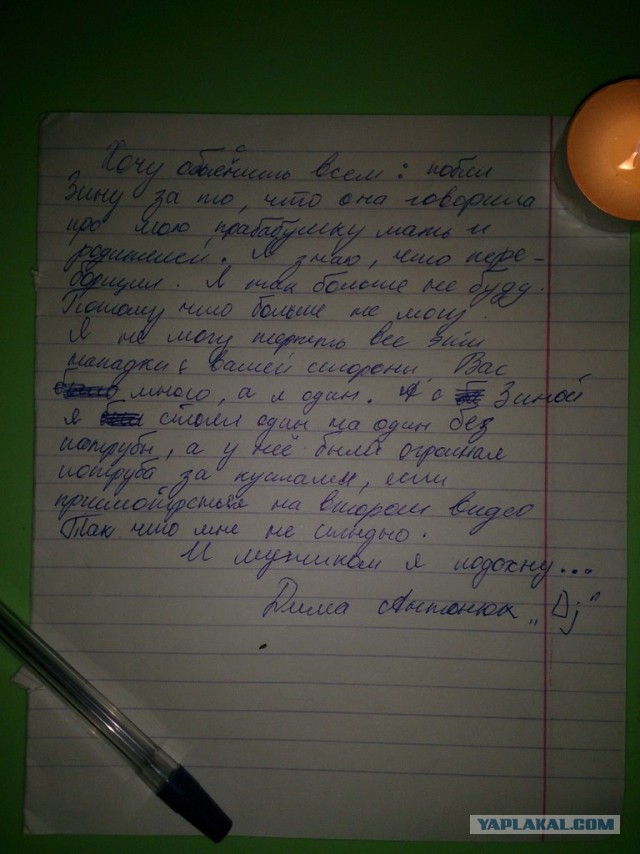 Хочу обяенить всем: побил
Зину за то, что она говорила
про мою прабабушку мать и
родителей. Я знаю, что пере-
борщил. Я так больше не буду.
Потому что больше не могу.
Я не могу терпеть все эти
нападки с вашей стороны. Вас
много, а я один. А с Зиной
я стоял один на один без
потрубы, а у неё была огромная
потруба за кустами, если
присмотреться на втором видео
Так что мне не стыдно.
И мужиком я подохну...
Дима Антонюк "Dj"
YAPLAKAL.COM